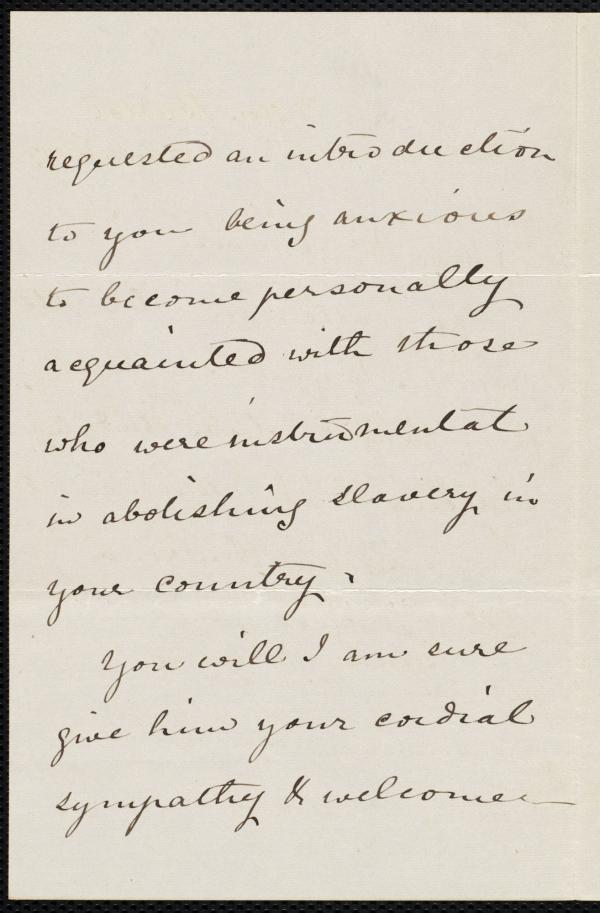 requested an introduction
to you being anxious
to become personally
acquainted with those
who were instrumental
in abolishing slavery in
your country.
You will I am sure
give him your cordial
sympathy & welcome—